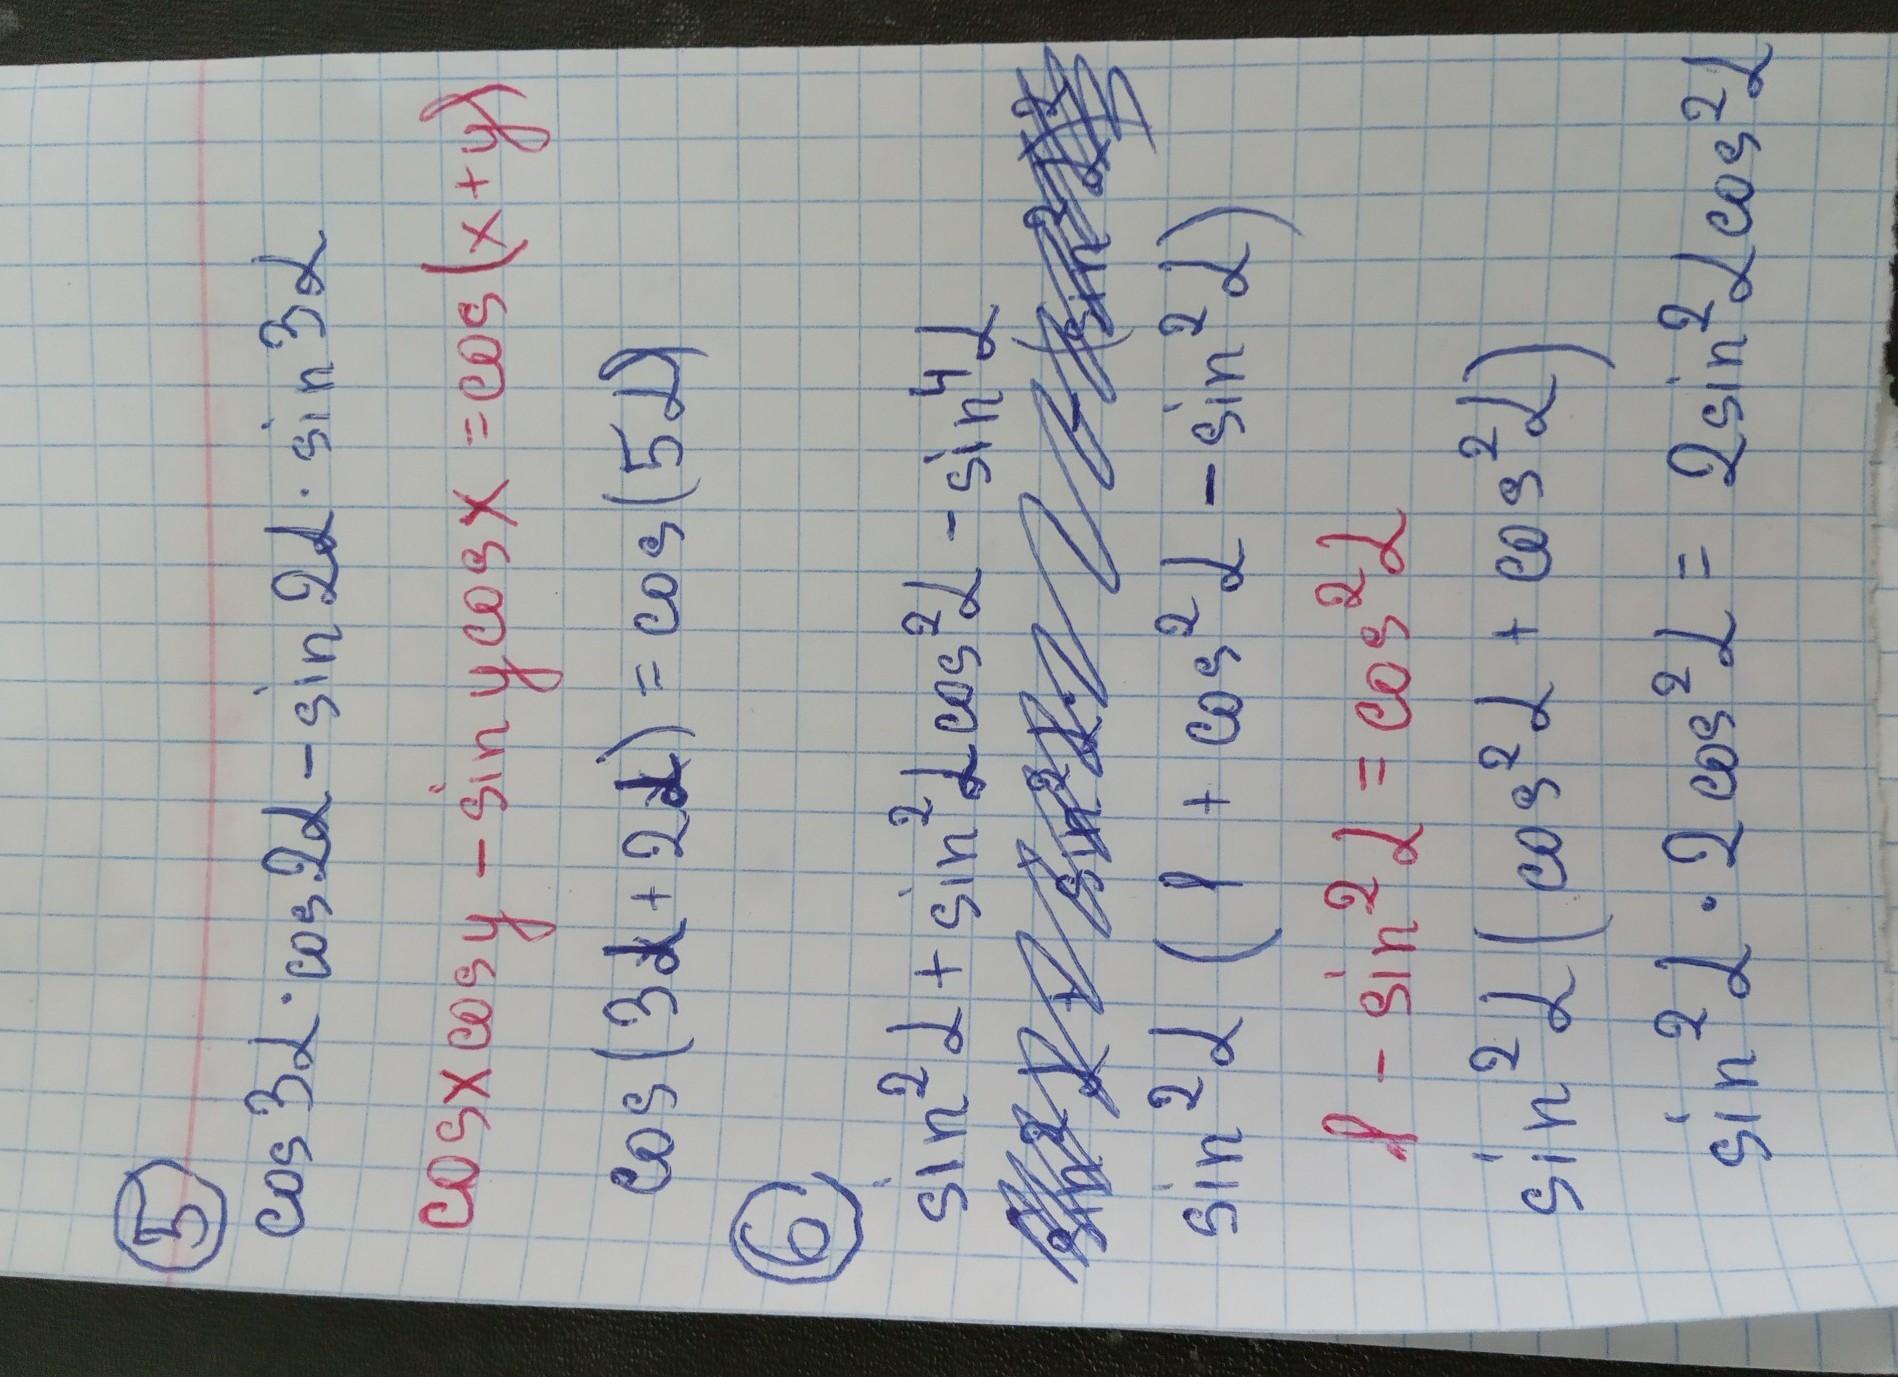 5
cos3α·cos2α-sin2α·sin3α
cosxcosy-sinycosx=cos(x+y)
cos(3α+2α)=cos(5α)
6
sin²α+sin²αcos²α-sin⁴α
sin²α(1+cos²α-sin²α)
1-sin²α=cos²α
sin²α(cos²α+cos²α)
sin²α·2cos²α=2sin²αcos²α